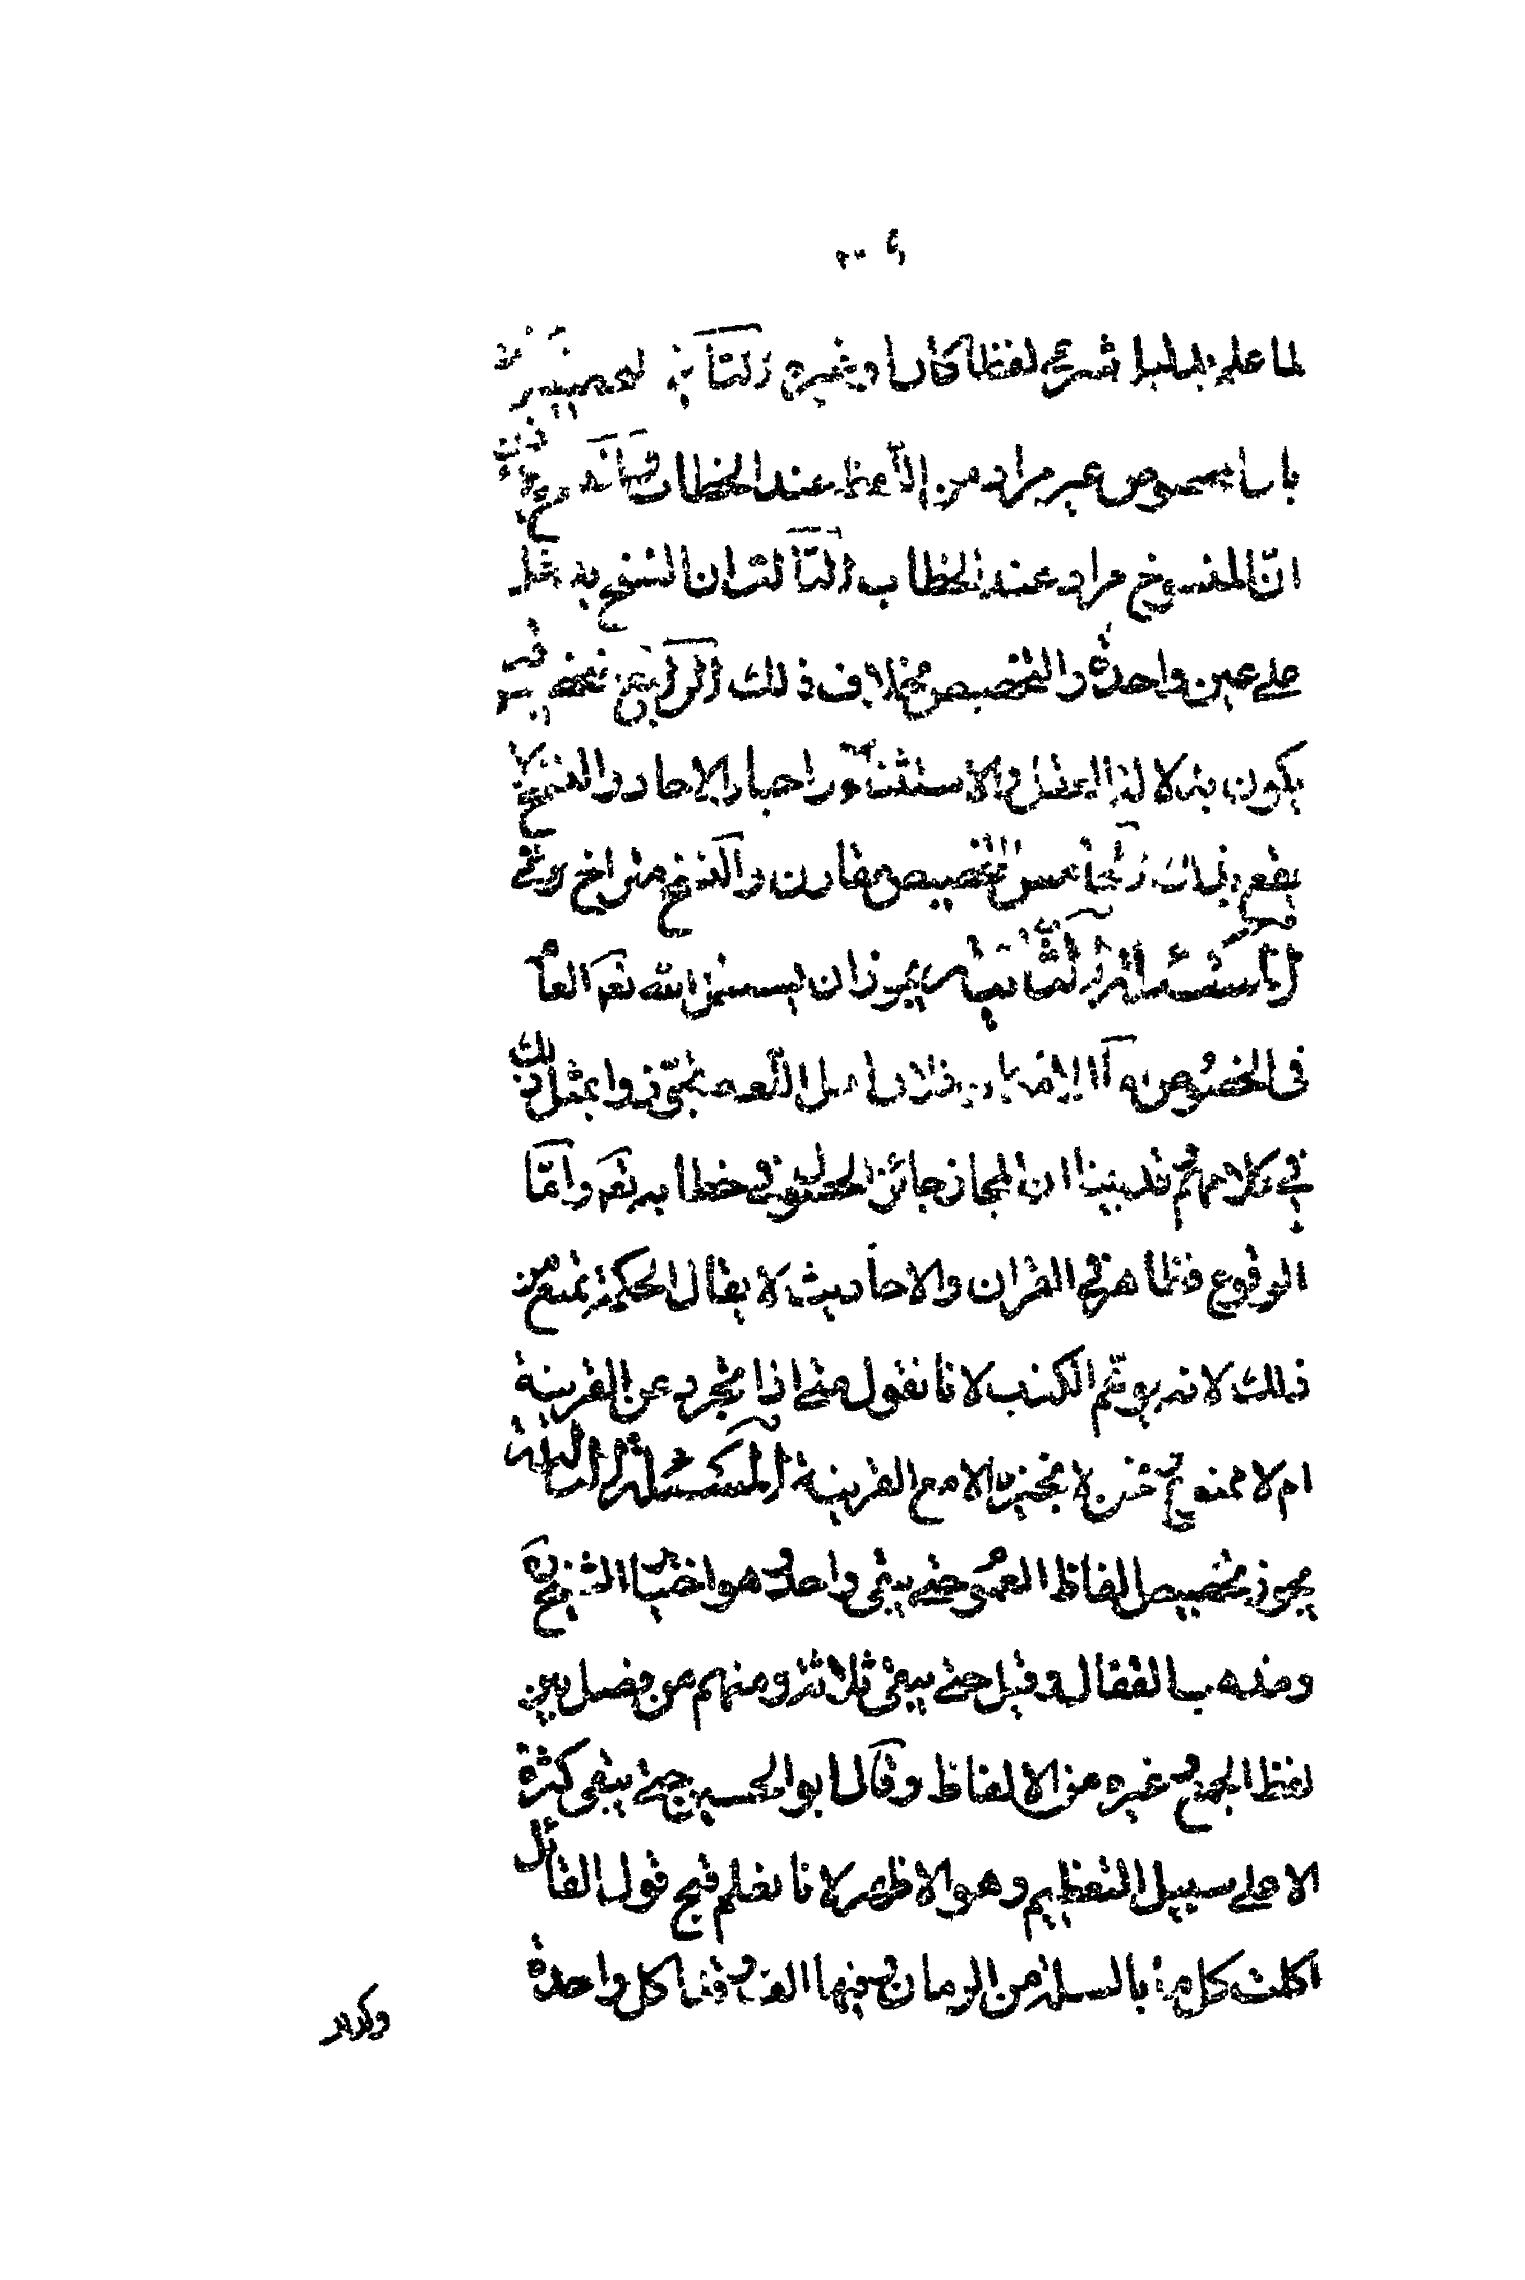 لما علم بدليل شرعي لفظا كان او غيره الثاني التخصيص
بان المخصوص غير مراد من اللفظ عند الخطاب
انّ المنسوخ مراد عند الخطاب الثالث ان النسخ يدخل
على عين واحدة والتخصيص بخلاف ذلك الرابع التخصيص
يكون بدلالة العقل والاستثناء واخبار الاحاد والنسخ لا
يقع بذلك الخامس التخصيص مقارن والنسخ متراخ
المسئلة الثانية يجوز ان يستعمل الله تعه العام
في الخصوص فلان اهل اللغة تجوّزوا بمثل ذلك
في كلامهم وقد بينا ان المجاز جائز الحصول في خطابه تعه وامّا
الوقوع فظاهر في القران والاحاديث لا يقال الحكمة تمنع من
ذلك لانه يوهم الكذب لانا نقول متى اذا تجرد عن القرينة
ام لا ممنوع ونحن لا نجيزه الا مع القرينة المسئلة الثالثة
يجوز تخصيص الفاظ العموم حتى يبقى واحد وهو اختيار الشيخ
ومذهب القفال وقيل حتى يبقى ثلاثة ومنهم من فصل بين
لفظ الجمع وغيره من الالفاظ وقال ابو الحسين حتى يبقى كثرة
الا على سبيل التعظيم وهو الاظهر لانا نعلم قبح قول القائل
اكلت كل ما بالسلة من الرمان وفيها الف وقد اكل واحدة